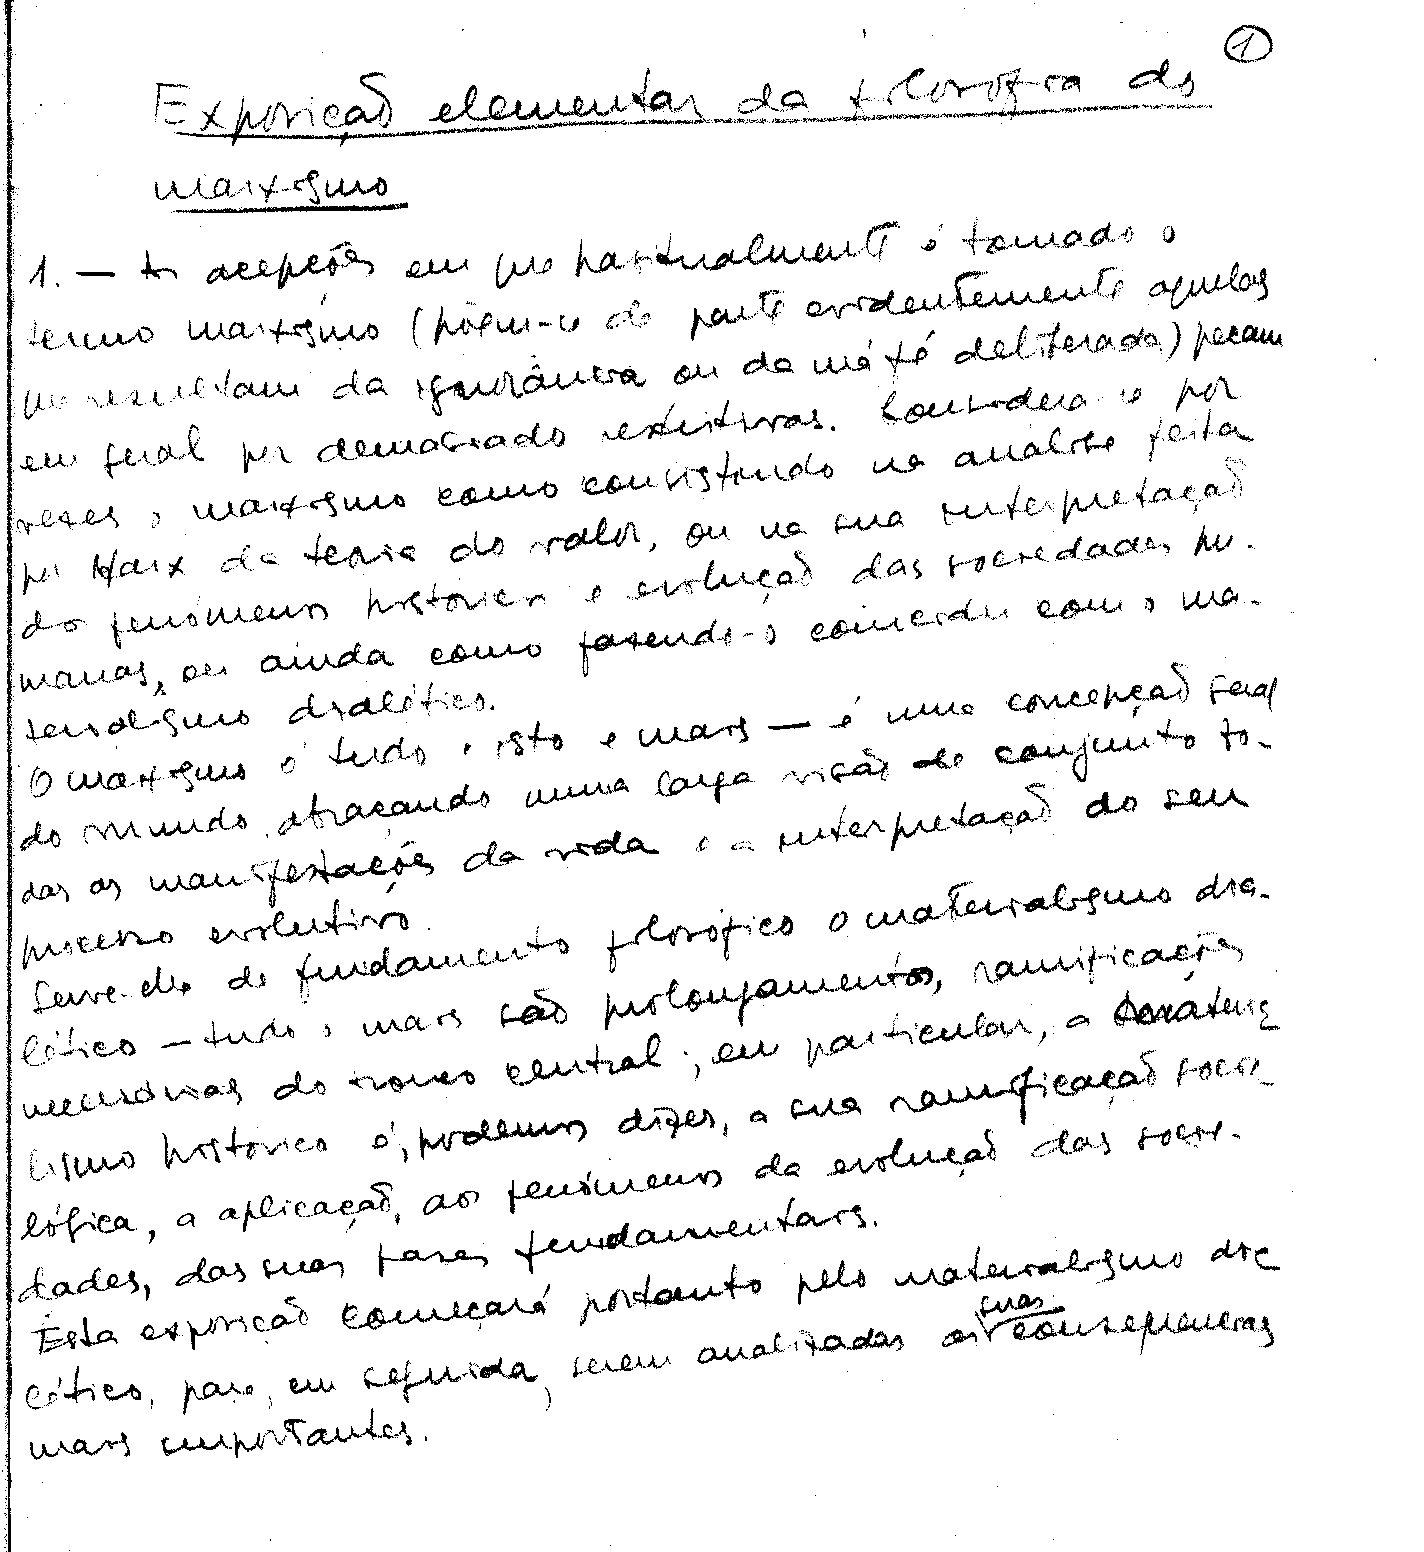 1
Exposição elementar da filosofia do
marxismo
1. — As acepções em que habitualmente é tomado o
termo marxismo (põem-se de parte evidentemente aquelas
que resultam da ignorância ou da má fé deliberada) pecam
em geral por demasiado restritivas. Considera-se por
vezes o marxismo como consistindo na análise feita
por Marx da teoria do valor, ou na sua interpretação
do fenómeno histórico e evolução das sociedades hu-
manas, ou ainda como fazendo-o coincidir com o ma-
terialismo dialético.
O marxismo é tudo isto e mais — é uma concepção geral
do mundo, abraçando numa larga visão de conjunto to-
das as manifestações da vida e a interpretação do seu
processo evolutivo.
Serve-lhe de fundamento filosófico o materialismo dia-
lético — tudo o mais são prolongamentos, ramificações
necessárias do tronco central; em particular, o materia
lismo histórico é, podemos dizer, a sua ramificação socio
lógica, a aplicação, aos fenómenos da evolução das socie-
dades, das suas bases fundamentais.
Esta exposição começará portanto pelo materialismo dia
lético, para, em seguida, serem analizadas as suas consequencias
mais importantes.